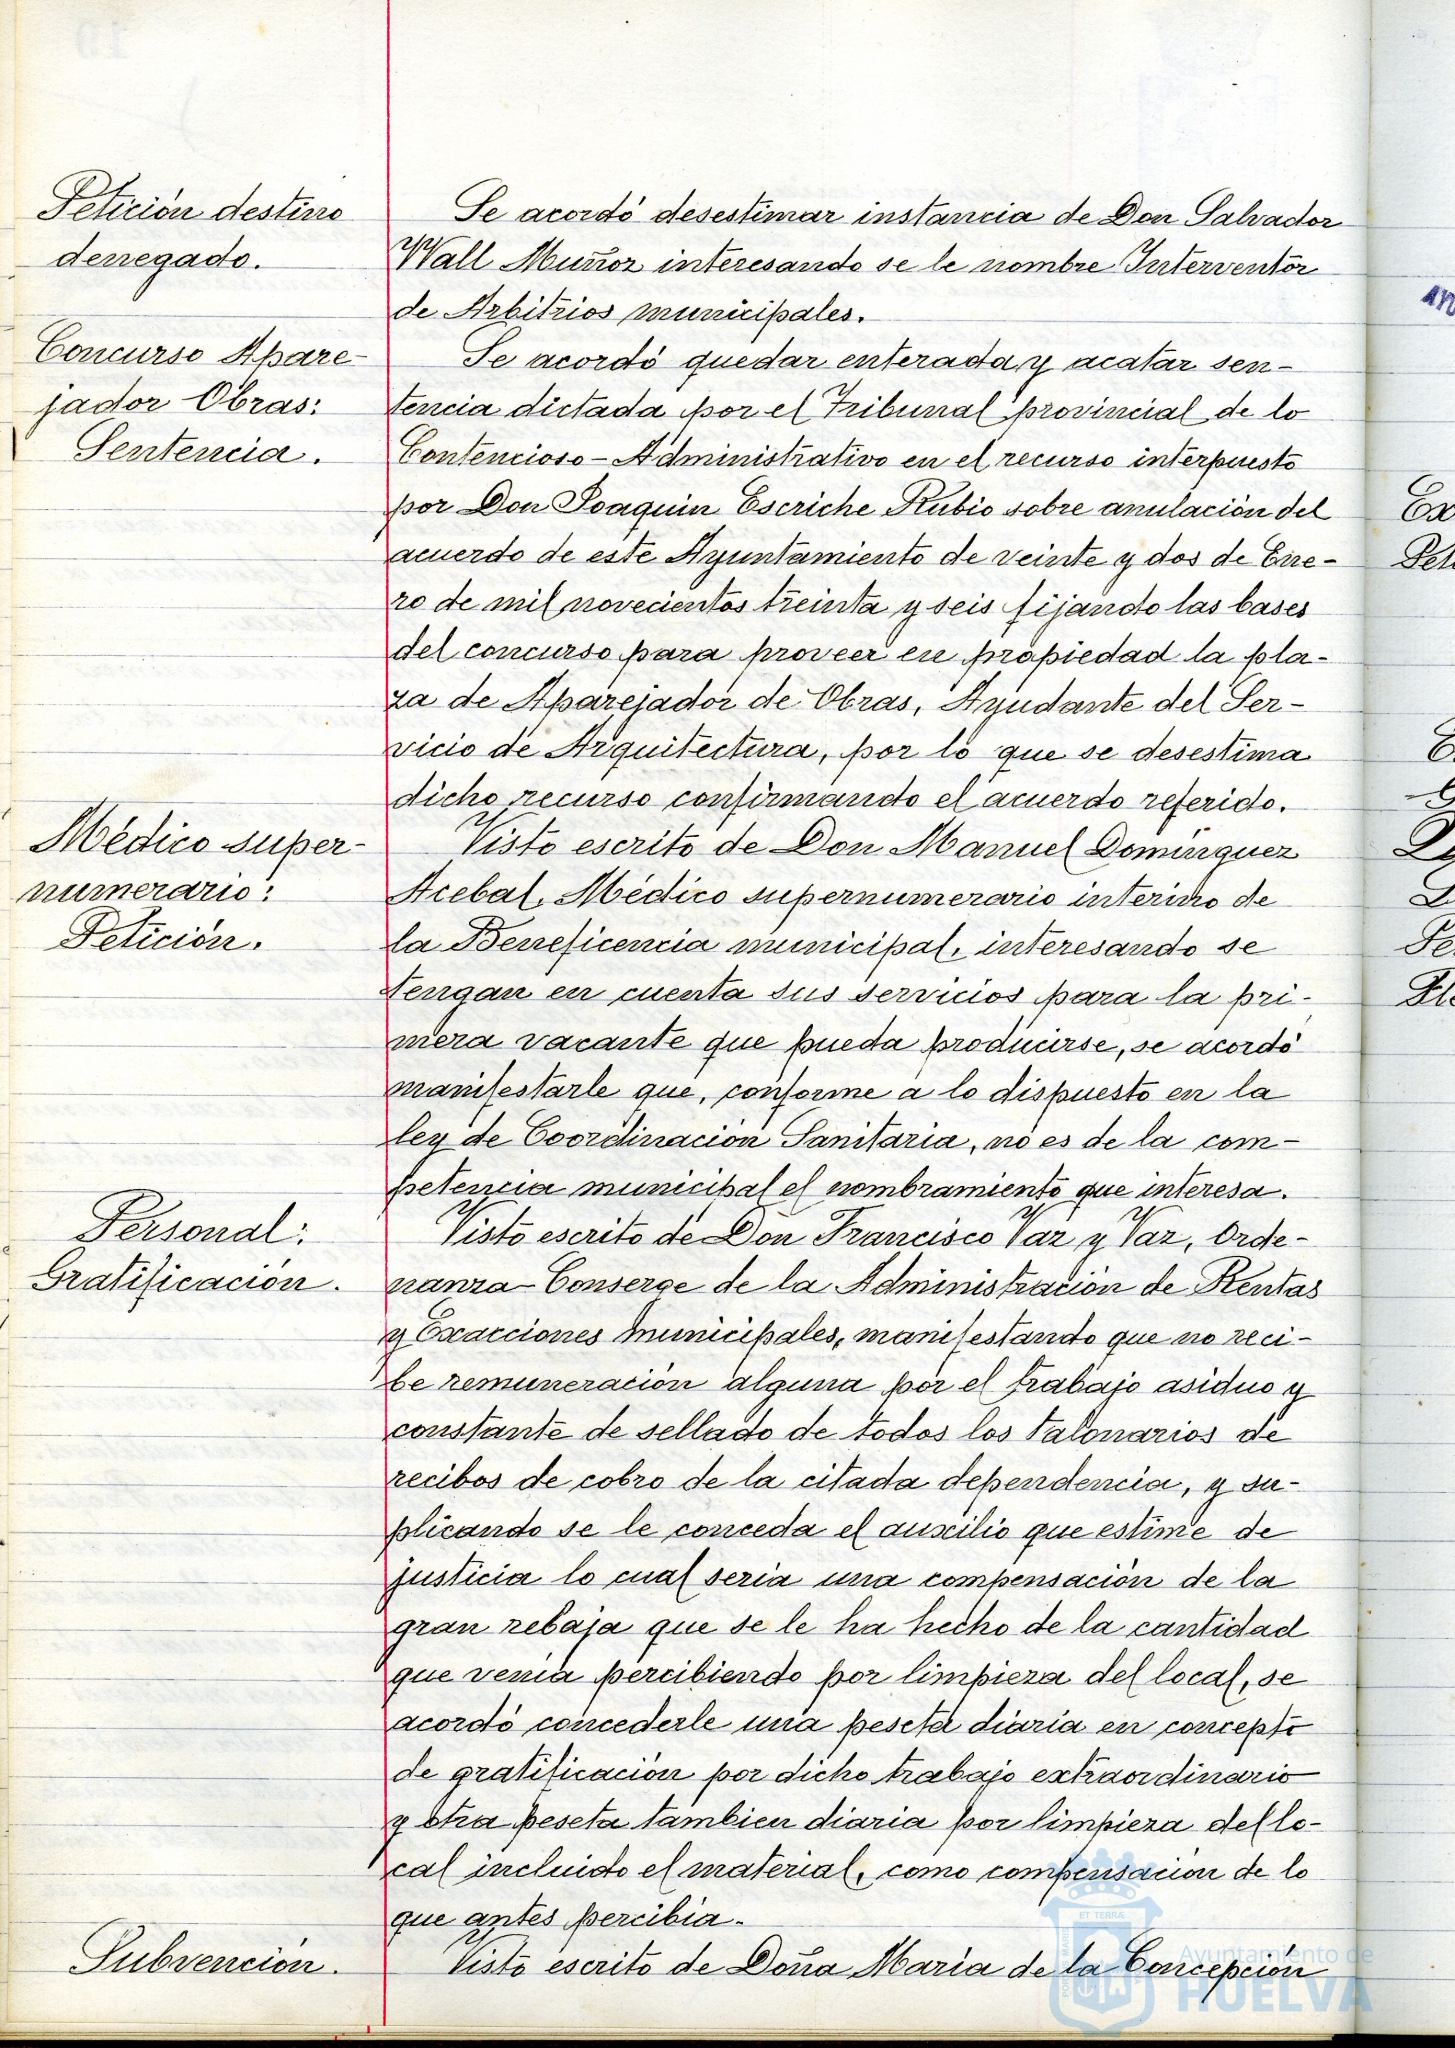 Petición destino
denegado.
Se acordó desestimar instancia de Don Salvador
Wall Muñoz interesando se le nombre Interventor
de Arbitrios municipales.
Concurso Apare-
jador Obras:
Sentencia.
Se acordó quedar enterada y acatar sen-
tencia dictada por el Tribunal provincial de lo
Contencioso-Administrativo en el recurso interpuesto
por Don Joaquin Escriche Rubio sobre anulación del
acuerdo de este Ayuntamiento de veinte y dos de Ene-
ro de mil novecientos treinta y seis fijando las bases
del concurso para proveer en propiedad la pla-
za de Aparejador de Obras, Ayudante del Ser-
vicio de Arquitectura, por lo que se desestima
dicho recurso confirmando el acuerdo referido.
Médico super-
numerario:
Petición.
Visto escrito de Don Manuel Dominguez
Acebal, Médico supernumerario interino de
la Beneficencia municipal, interesando se
tengan en cuenta sus servicios para la pri-
mera vacante que pueda producirse, se acordó
manifestarle que, conforme a lo dispuesto en la
ley de Coordinación Sanitaria, no es de la com-
petencia municipal el nombramiento que interesa.
Personal:
Gratificación.
Visto escrito de Don Francisco Vaz y Vaz, Orde-
nanza-Conserge de la Administración de Rentas
y Exacciones municipales, manifestando que no reci-
be remuneración alguna por el trabajo asiduo y
constante de sellado de todos los talonarios de
recibos de cobro de la citada dependencia, y su-
plicando se le conceda el auxilio que estime de
justicia lo cual seria una compensación de la
gran rebaja que se le ha hecho de la cantidad
que venia percibiendo por limpieza del local, se
acordó concederle una peseta diaria en concepto
de gratificación por dicho trabajo extraordinario
y otra peseta tambien diaria por limpieza del lo-
cal incluido el material, como compensación de lo
que antes percibia.
Subvención.
Visto escrito de Doña Maria de la Concepción
Ayuntamiento de
HUELVA